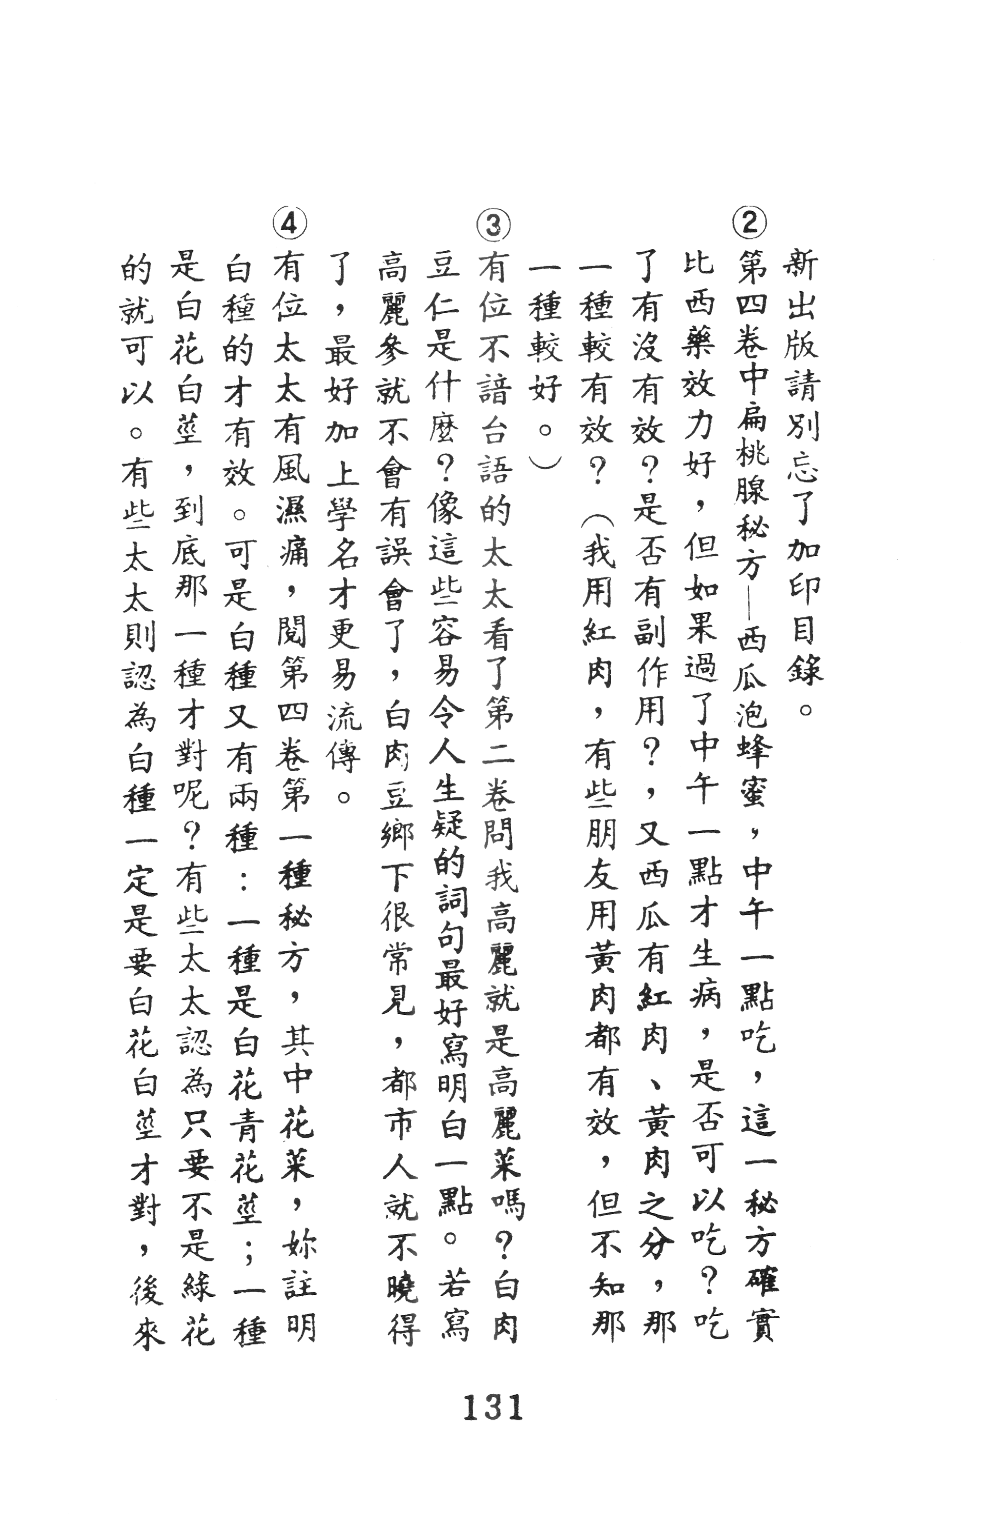 新出版請別忘了加印目錄。
②第四卷中扁桃腺秘方—西瓜泡蜂蜜，中午一點吃，這一秘方確實
比西藥效力好，但如果過了中午一點才生病，是否可以吃？吃
了有沒有效？是否有副作用？，又西瓜有紅肉、黃肉之分，那
一種較有效？（我用紅肉，有些朋友用黃肉都有效，但不知那
一種較好。）
③有位不諳台語的太太看了第二卷問我高麗就是高麗菜嗎？白肉
豆仁是什麼？像這些容易令人生疑的詞句最好寫明白一點。若寫
高麗參就不會有誤會了，白肉豆鄉下很常見，都市人就不曉得
了，最好加上學名才更易流傳。
④有位太太有風濕痛，閱第四卷第一種秘方，其中花菜，妳註明
白種的才有效。可是白種又有兩種：一種是白花青花莖；一種
是白花白莖，到底那一種才對呢？有些太太認為只要不是綠花
的就可以。有些太太則認為白種一定是要白花白莖才對，後來
131